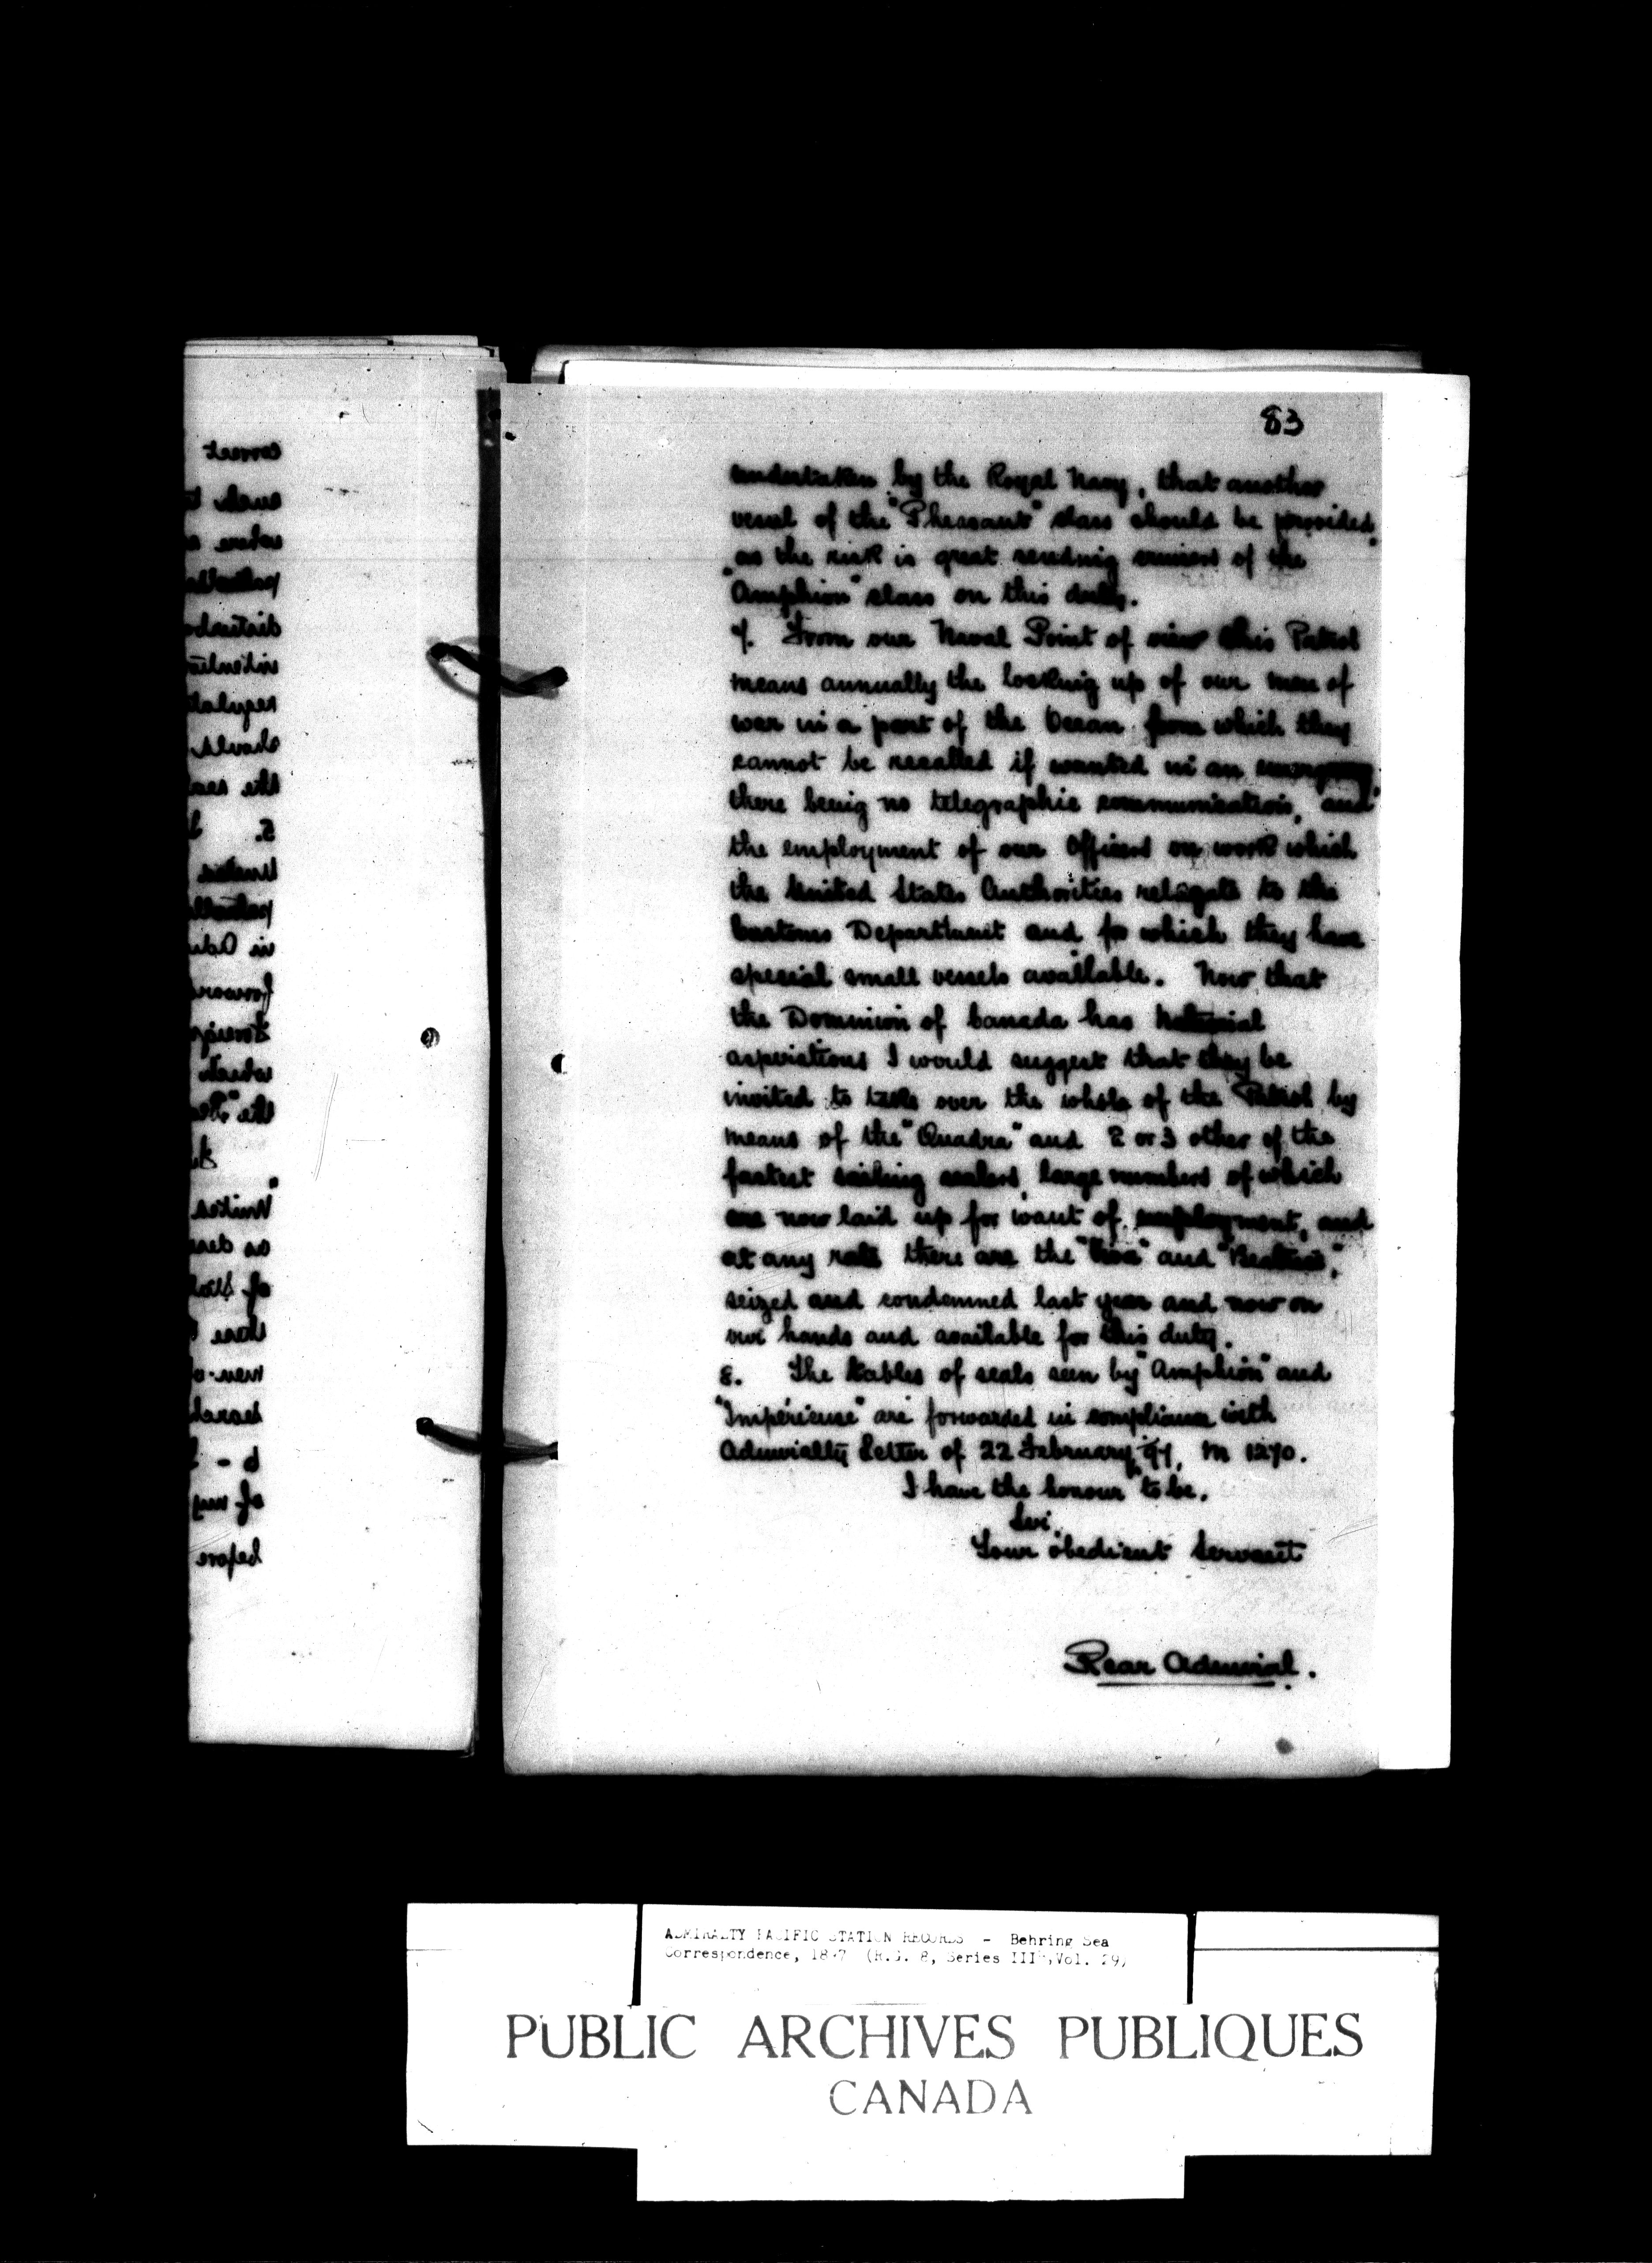 83
undertaken by the Royal Navy, that another
vessel of the "Pheasant" class should be provided,
as the risk is great sending cruisers of the
"Amphion" class on this duty.
7. From our Naval Point of view this Patrol
means annually the locking up of our men of
war in a part of the Ocean from which they
cannot be recalled if wanted in an emergency
there being no telegraphic communication, and
the employment of our Officers on work which
the United States Authorities relegate to the
Customs Department and for which they have
special small vessels available. Now that
the Dominion of Canada has National
aspirations I would suggest that they be
invited to take over the whole of the Patrol by
means of the "Quadra" and 2 or 3 other of the
fastest sailing sealers, large numbers of which
are now laid up for want of employment, and
at any rate there are the "Viva" and "Beatrice",
seized and condemned last year and now on
our hands and available for this duty.
8. The tables of seals seen by "Amphion" and
"Impérieuse" are forwarded in compliance with
Admiralty Letter of 22 February 97, M 1270.
I have the honour to be,
Sir,
Your obedient Servant
Rear Admiral.
ADMIRALTY PACIFIC STATION RECORDS - Behring Sea
Correspondence, 1897 (R.G. 8, Series III, Vol. 29)
PUBLIC ARCHIVES PUBLIQUES
CANADA